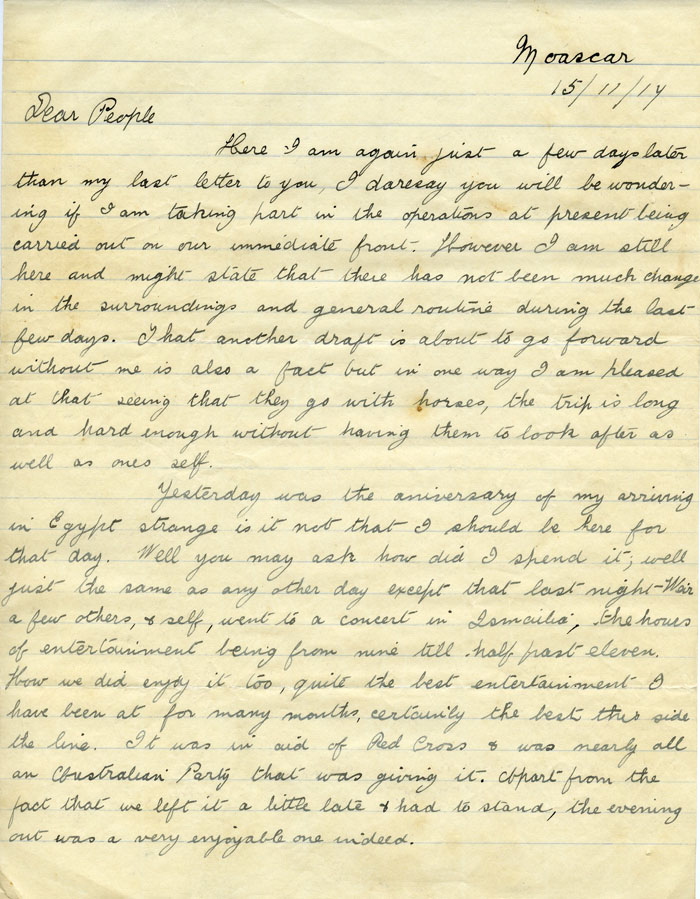 Moascar
15/11/17
Dear People
Here I am again just a few days later
than my last letter to you, I daresay you will be wonder-
ing if I am taking part in the operations at present being
carried out on our immediate front. However I am still
here and might state that there has not been much change
in the surroundings and general routine during the last
few days. That another draft is about to go forward
without me is also a fact but in one way I am pleased
at that seeing that they go with horses, the trip is long
and hard enough without having them to look after as
well as ones self.
Yesterday was the aniversary of my arriving
in Egypt strange is it not that I should be here for
that day. Well you may ask how did I spend it; well
just the same as any other day except that last night - Weir
a few others, & self, went to a concert in Ismailia, the hours
of entertainment being from nine till half past eleven.
How we did enjoy it too, quite the best entertainment I
have been at for many months, certainly the best this side
the line. It was in aid of Red Cross & was nearly all
an Australian Party that was giving it. Apart from the
fact that we left it a little late & had to stand, the evening
out was a very enjoyable one indeed.